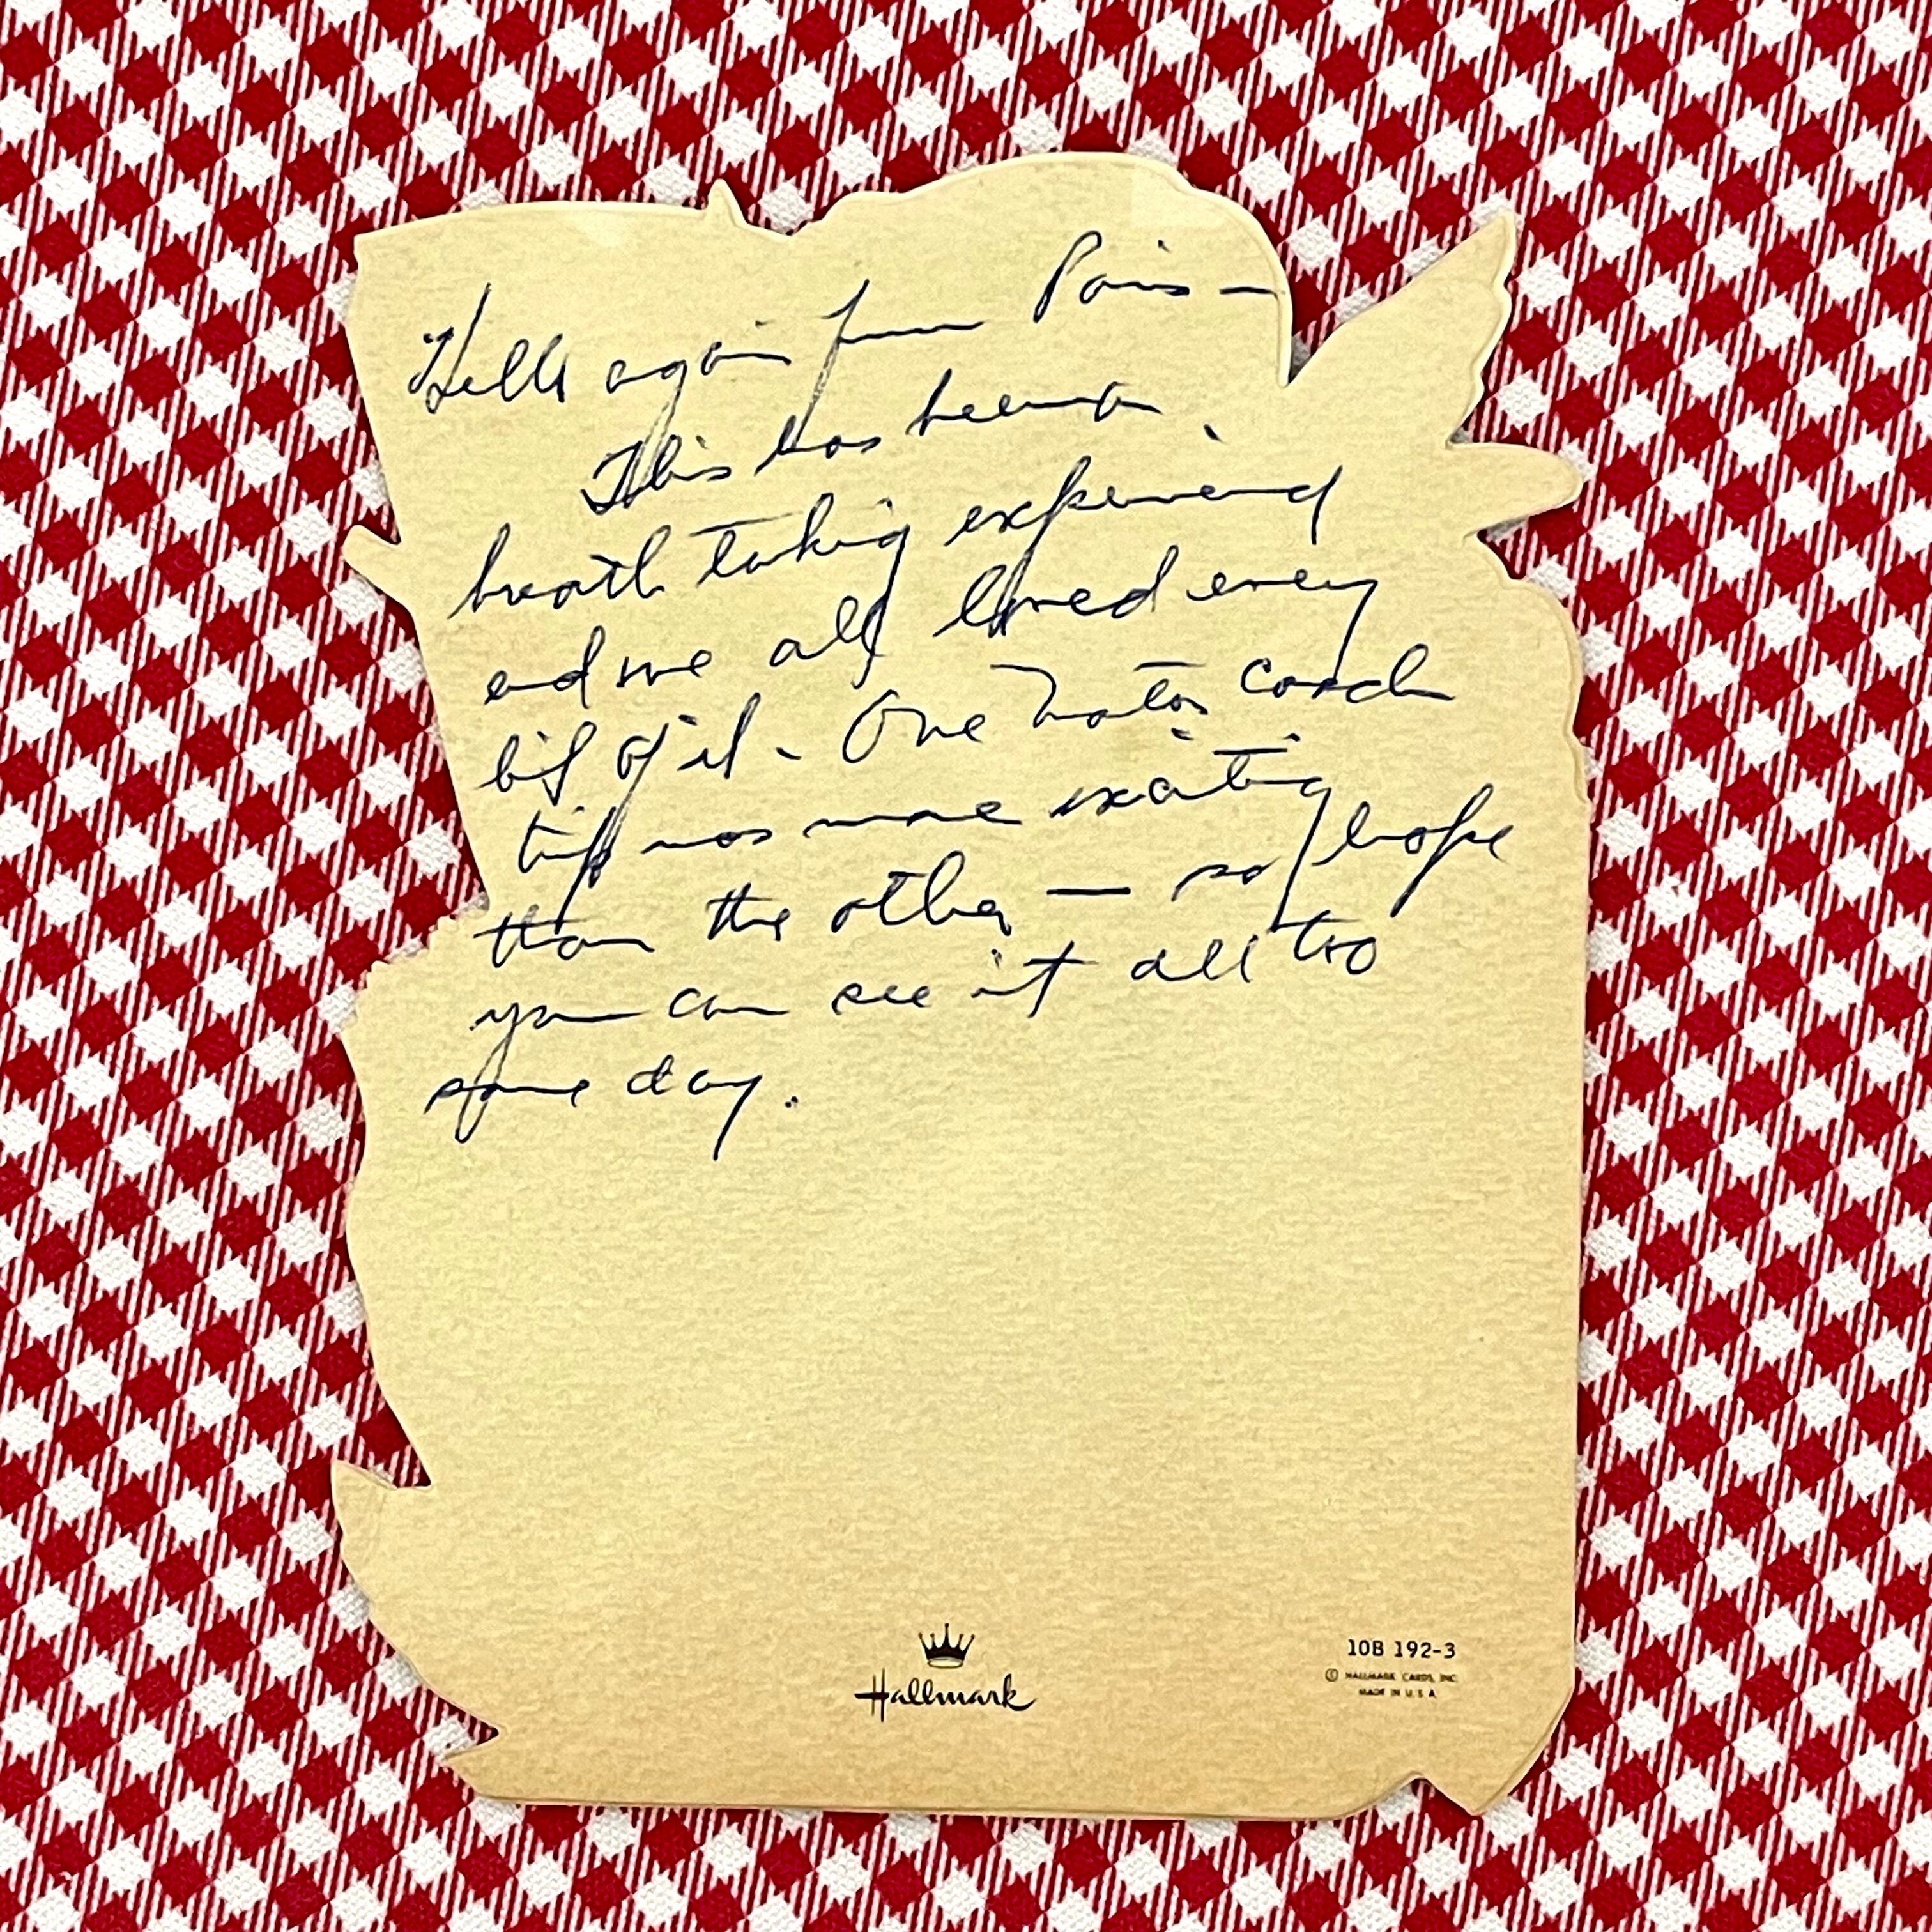 Hello again from Paris —
This has been a
breath taking experience
and we all loved every
bit of it - One motor coach
trip was more exciting
than the other — so hope
you can see it all too
some day.
Hallmark
10B 192-3
© HALLMARK CARDS, INC.
MADE IN U.S.A.